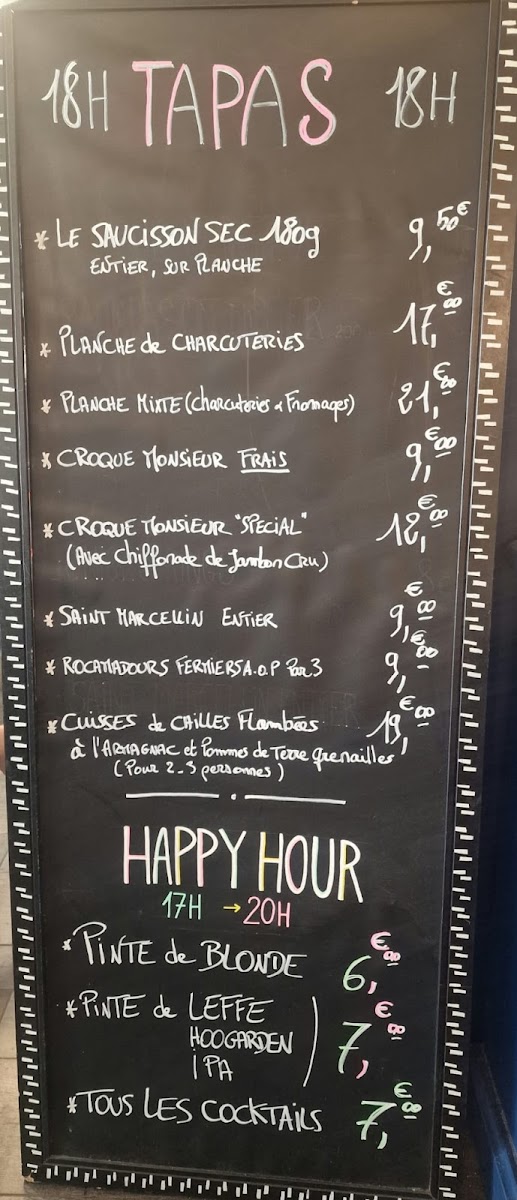 18H TAPAS 18H
* LE SAUCISSON SEC 180g 9,50€
ENTIER, SUR PLANCHE
* PLANCHE de CHARCUTERIES 17,€00
* PLANCHE MIXTE (charcuteries & Fromages) 21,€00
* CROQUE MONSIEUR FRAIS 9,€00
* CROQUE MONSIEUR "SPECIAL" 12,€00
(Avec chiffonade de Jambon CRU)
* SAINT MARCELLIN ENTIER 9,€00
* ROCAMADOURS FERMIERS A.O.P Par 3 9,€00
* CUISSES de CAILLES Flambées 19,€00
à l'ARMAGNAC et Pommes de Terre grenailles
(Pour 2-3 personnes)
HAPPY HOUR
17H → 20H
* PINTE de BLONDE 6,€00
* PINTE de LEFFE
HOOGARDEN ) 7,€00
iPA
* TOUS LES COCKTAILS 7,€00